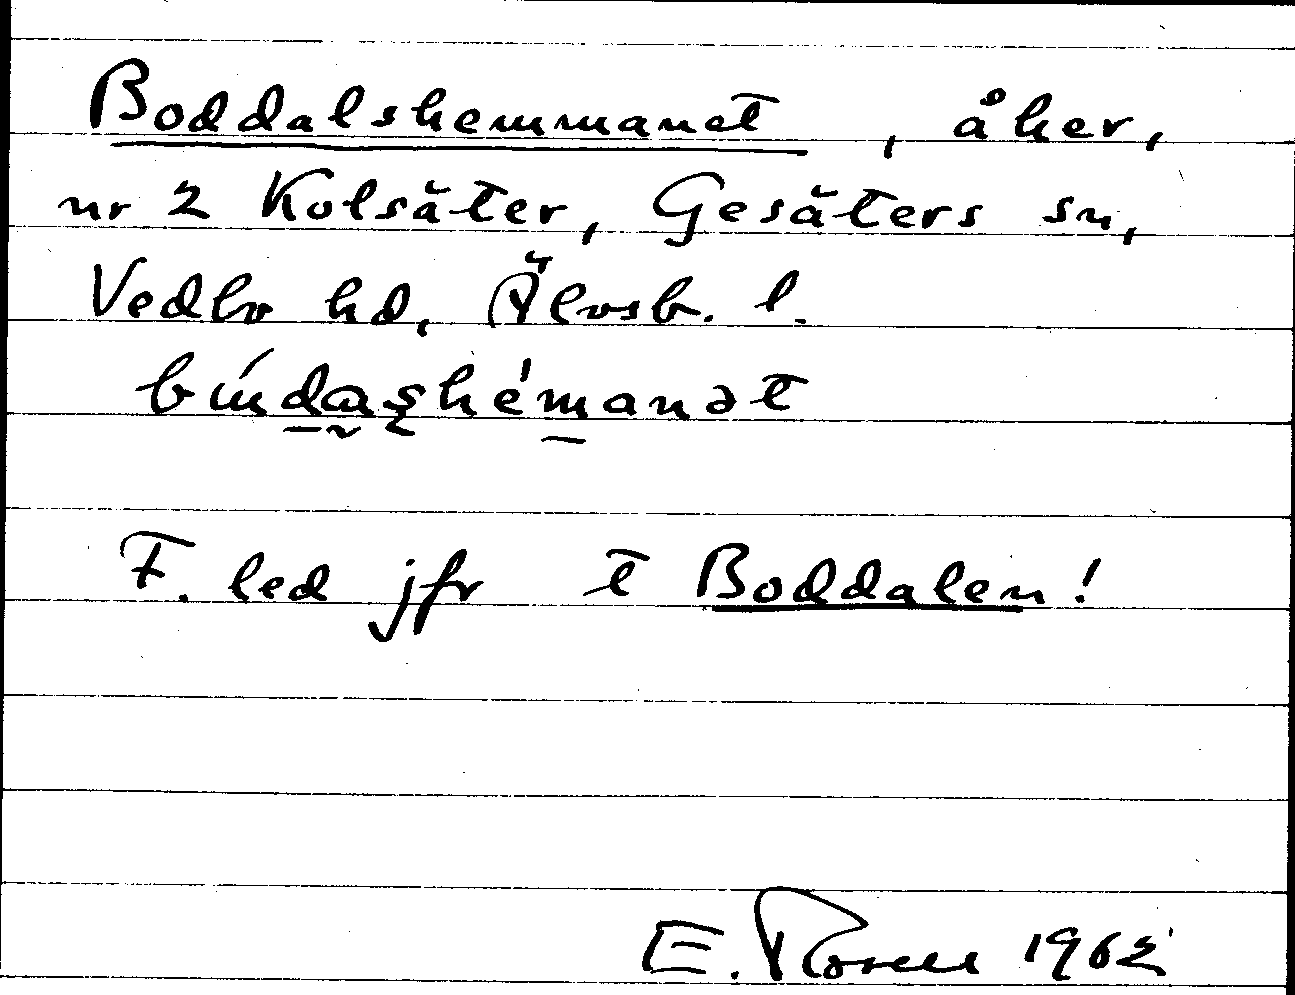 Boddalshemmanet, åker,
nr 2 Kolsäter, Gesäters sn,
Vedbo hd, Älvsb. l.
F. led jfr t Boddalen!
E. 1962